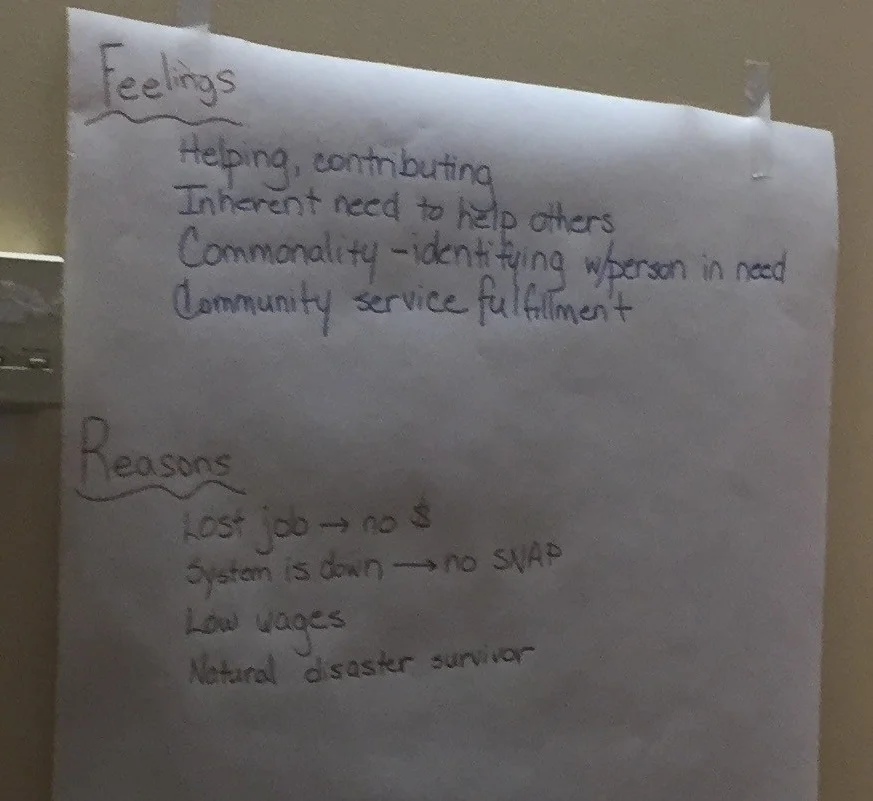 Feelings
Helping, contributing
Inherent need to help others
Commonality - identifying w/person in need
Community service fulfillment
Reasons
Lost job → no $
System is down → no SNAP
Low wages
Natural disaster survivor